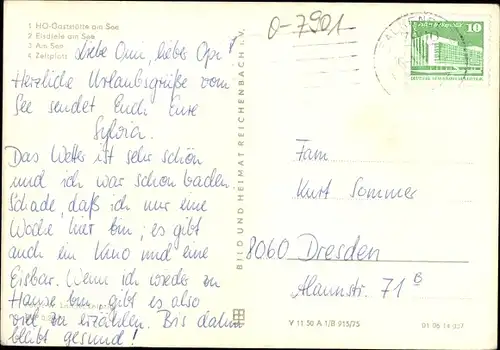 1 HO-Gaststätte am See
2 Eisdiele am See
3 Am See
4 Zeltplatz
Liebe Omi, lieber Opi!
Herzliche Urlaubsgrüße vom
See sendet Euch Eure
Sylvia.
Das Wetter ist sehr schön
und ich war schon baden.
Schade, daß ich nur eine
Woche hier bin; es gibt
auch ein Kino und eine
Eisbar. Wenn ich wieder zu
Hause bin gibt es also
viel zu erzählen. Bis dahin
bleibt gesund!
BILD UND HEIMAT REICHENBACH i. V.
0-7901
10
Fam
Kurt Sommer
8060 Dresden
Alaunstr. 71 B
V 11 50 A 1/B 915/75
01 06 14 337